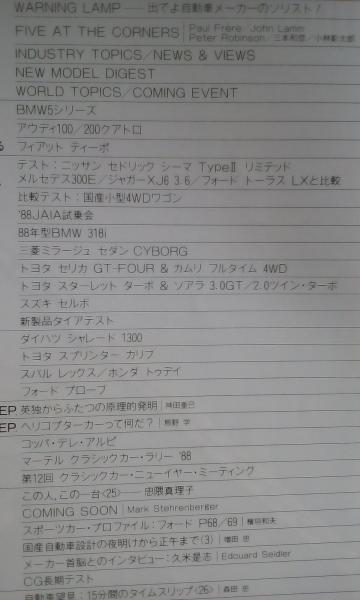 WARNING LAMP — 出でよ自動車メーカーのソリスト！
FIVE AT THE CORNERS | Paul Frère／John Lamm
Peter Robinson／三本和彦／小林彰太郎
INDUSTRY TOPICS／NEWS & VIEWS
NEW MODEL DIGEST
WORLD TOPICS／COMING EVENT
BMW5シリーズ
アウディ100／200クアトロ
フィアット ティーポ
テスト：ニッサン セドリック シーマ TypeⅡ リミテッド
メルセデス300E／ジャガーXJ6 3.6／フォード トーラス LXと比較
比較テスト：国産小型4WDワゴン
'88JAIA試乗会
88年型BMW 318i
三菱ミラージュ セダン CYBORG
トヨタ セリカ GT-FOUR & カムリ フルタイム 4WD
トヨタ スターレット ターボ & ソアラ 3.0GT／2.0ツイン・ターボ
スズキ セルボ
新製品タイアテスト
ダイハツ シャレード 1300
トヨタ スプリンター カリブ
スバル レックス／ホンダ トゥデイ
フォード プローブ
EP 英独からふたつの原理的発明 | 神田重巳
EP ヘリコプターカーって何だ？ | 熊野 学
コッパ・デレ・アルピ
マーテル クラシックカー・ラリー '88
第12回 クラシックカー・ニューイヤー・ミーティング
この人，この一台〈25〉— 忠隈真理子
COMING SOON | Mark Stehrenberger
スポーツカー・プロファイル：フォード P68／69 | 檜垣和夫
国産自動車設計の夜明けから正午まで〈3〉 | 増田 忠
メーカー首脳とのインタビュー：久米是志 | Edouard Seidler
CG長期テスト
自動車望見：15分間のタイムスリップ〈26〉 | 森田 忠